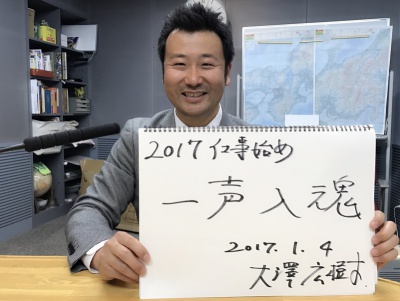 2017 仕事始め
一声入魂
2017.1.4
大澤広樹